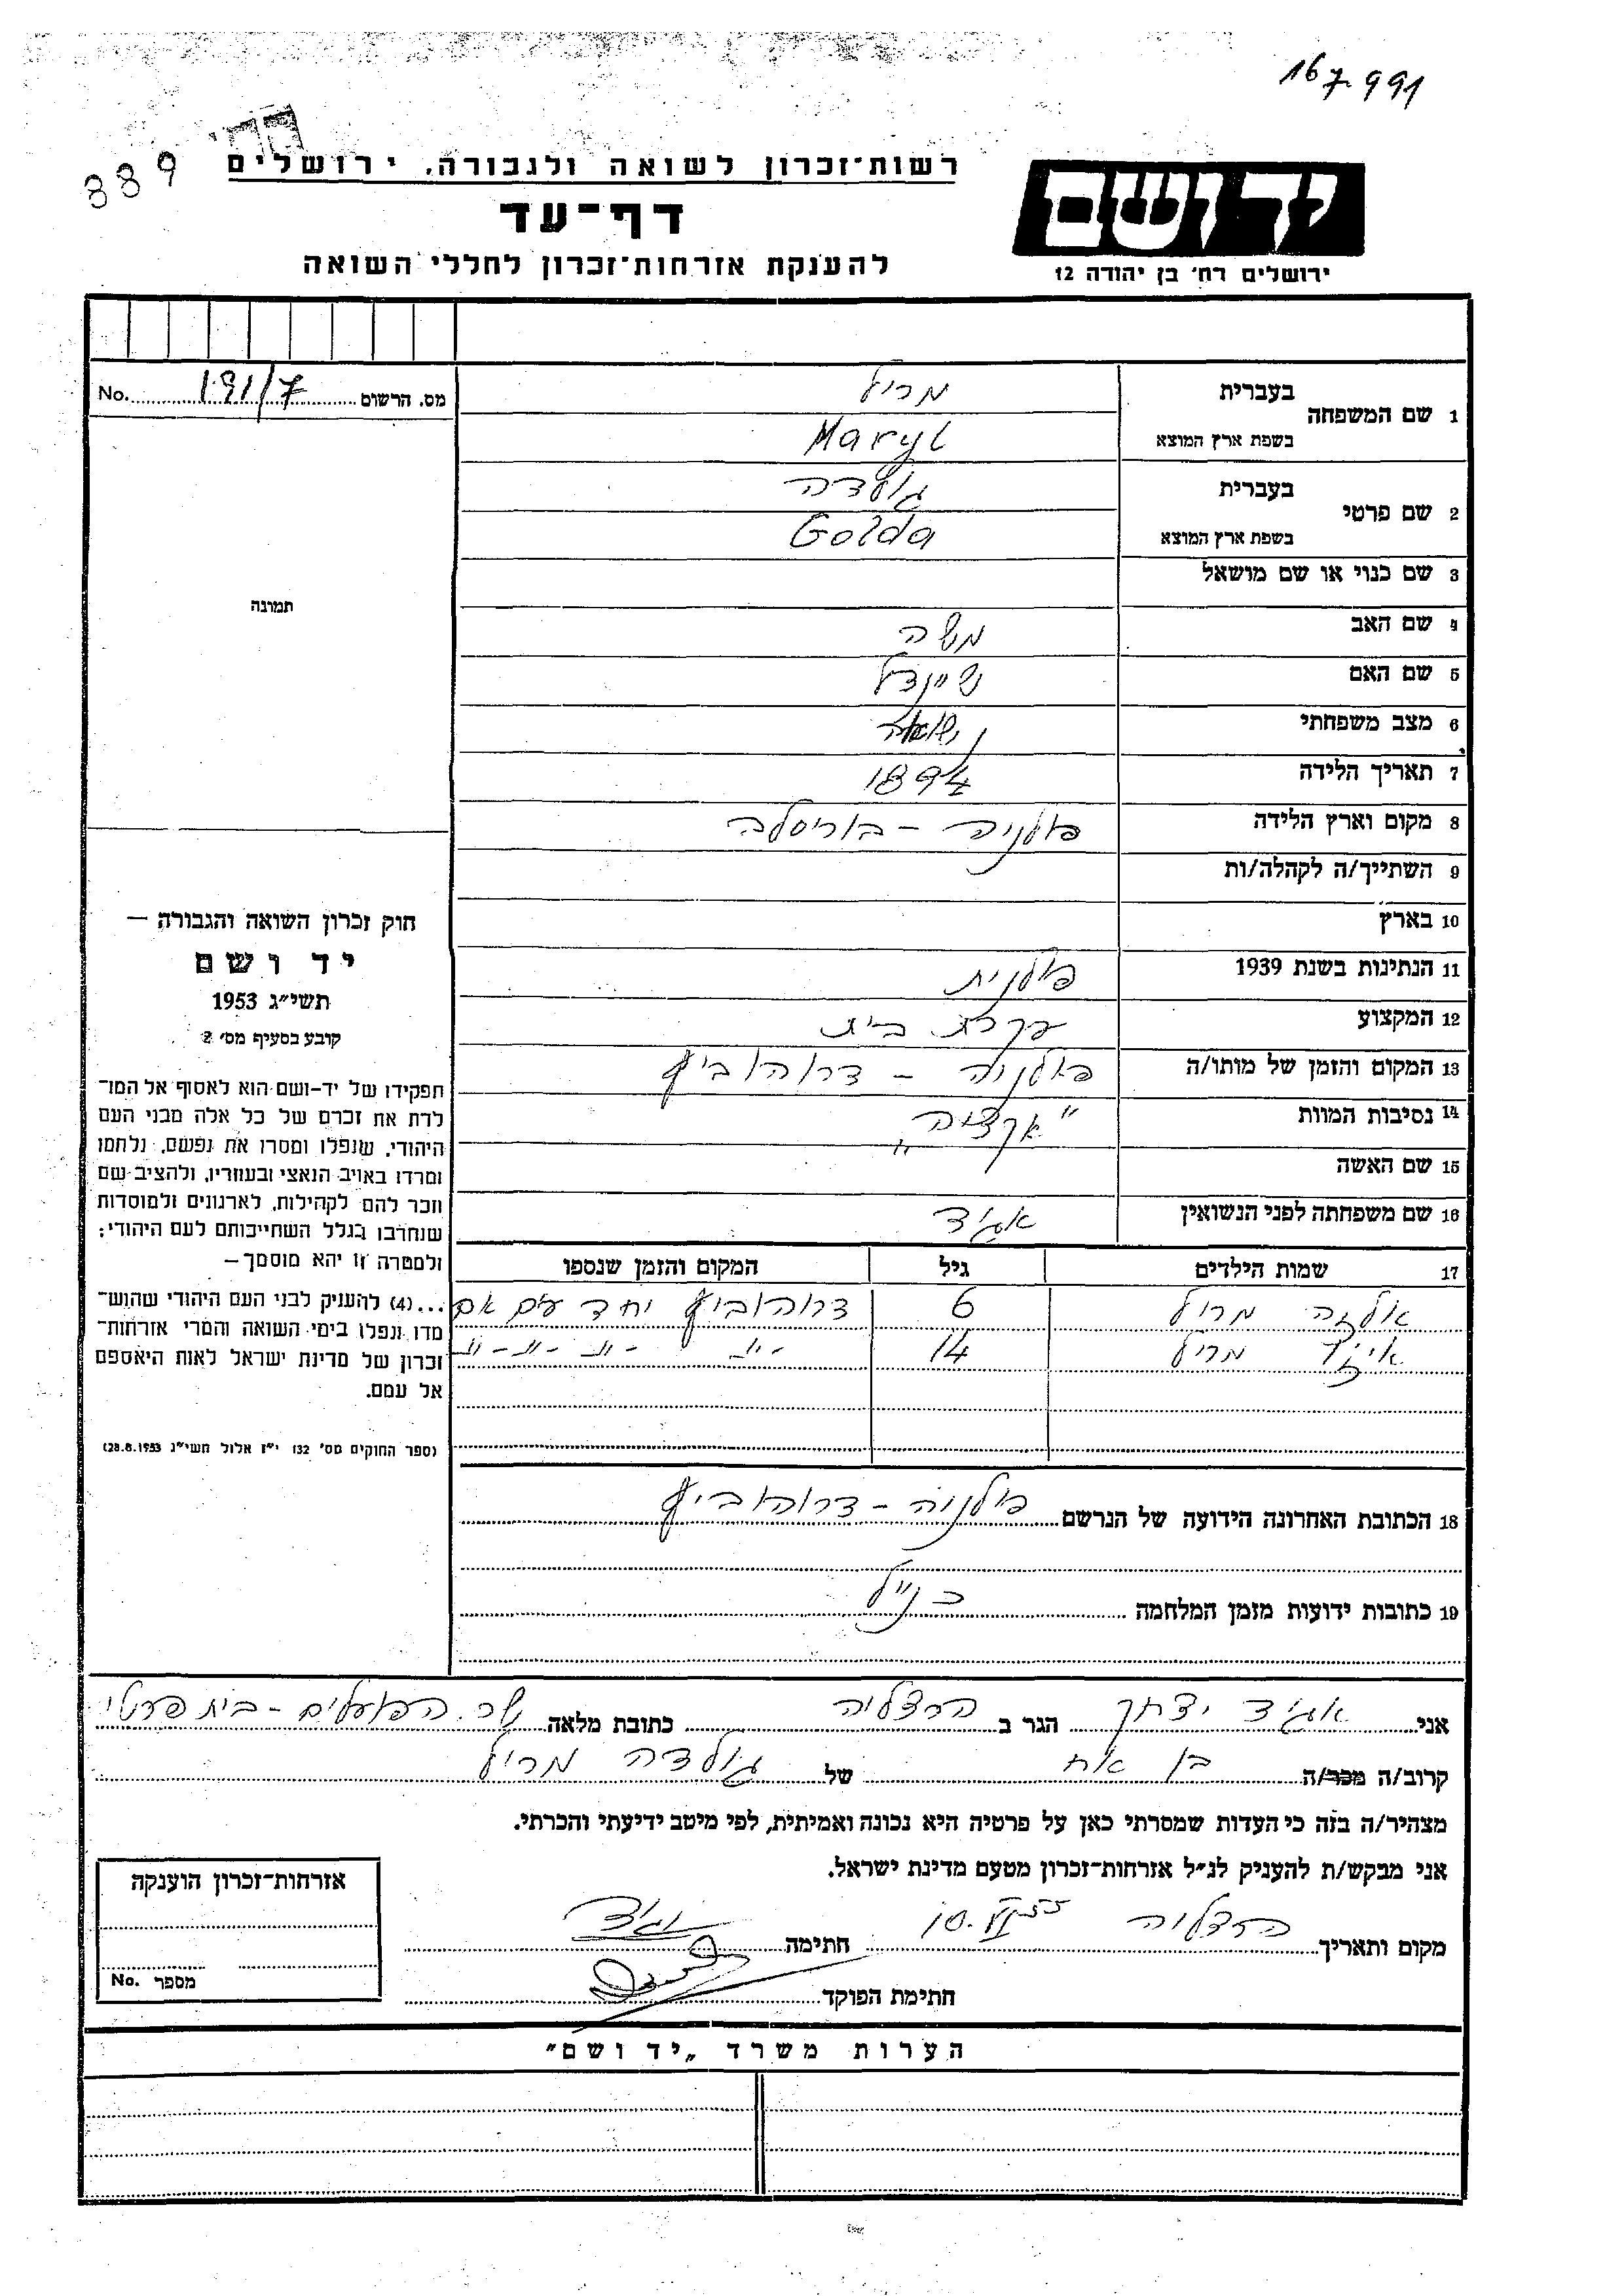 16 7.991
889
רשות־זכרון לשואה ולגבורה. ירושלים
דף־עד
להענקת אזרחות־זכרון לחללי השואה
יד ושם
ירושלים רח׳ בן יהודה 12
מס. הרשום 191/7 No.
תמונה
חוק זכרון השואה והגבורה —
יד ושם
תשי״ג 1953
קובע בסעיף מס׳ 2
תפקידו של יד-ושם הוא לאסוף אל המו־
לדת את זכרם של כל אלה מבני העם
היהודי. שנפלו ומסרו את נפשם. נלחמו
ומרדו באויב הנאצי ובעוזריו, ולהציב שם
וזכר להם לקהילות, לארגונים ולמוסדות
שנחרבו בגלל השתייכותם לעם היהודי;
ולמטרה זו יהא מוסמך —
...(4) להעניק לבני העם היהודי שהוש־
מדו ונפלו בימי השואה והמרי אזרחות־
זכרון של מדינת ישראל לאות היאספם
אל עמם.
(ספר החוקים מס׳ 132 י״ז אלול תשי״ג 28.8.1953)
1 שם המשפחה
בעברית מריל
בשפת ארץ המוצא Maryl
2 שם פרטי
בעברית גולדה
בשפת ארץ המוצא Golda
3 שם כנוי או שם מושאל
4 שם האב משה
5 שם האם שיינדל
6 מצב משפחתי נשואה
7 תאריך הלידה 1894
8 מקום וארץ הלידה פולניה - בוריסלב
9 השתייך/ה לקהלה/ות
10 בארץ
11 הנתינות בשנת 1939 פולנית
12 המקצוע עקרת בית
13 המקום והזמן של מותו/ה פולניה - דרוהוביץ
14 נסיבות המוות "אקציה"
15 שם האשה
16 שם משפחתה לפני הנשואין אגיד
17 שמות הילדים גיל המקום והזמן שנספו
מריל 6 דרוהוביץ יחד עם אם
מריל 14 -״- -״- -״- -״-
18 הכתובת האחרונה הידועה של הנרשם פולניה - דרוהוביץ
19 כתובות ידועות מזמן המלחמה כנ״ל
אני אגיד יצחק הגר ב הרצליה כתובת מלאה שכ. הפועלים - בית פרטי
קרוב/ה מכר/ה בן אח של גולדה מריל
מצהיר/ה בזה כי העדות שמסרתי כאן על פרטיה היא נכונה ואמיתית, לפי מיטב ידיעתי והכרתי.
אני מבקש/ת להעניק לנ״ל אזרחות-זכרון מטעם מדינת ישראל.
מקום ותאריך הרצליה חתימה
חתימת הפוקד
אזרחות-זכרון הוענקה
מספר No.
הערות משרד „יד ושם״